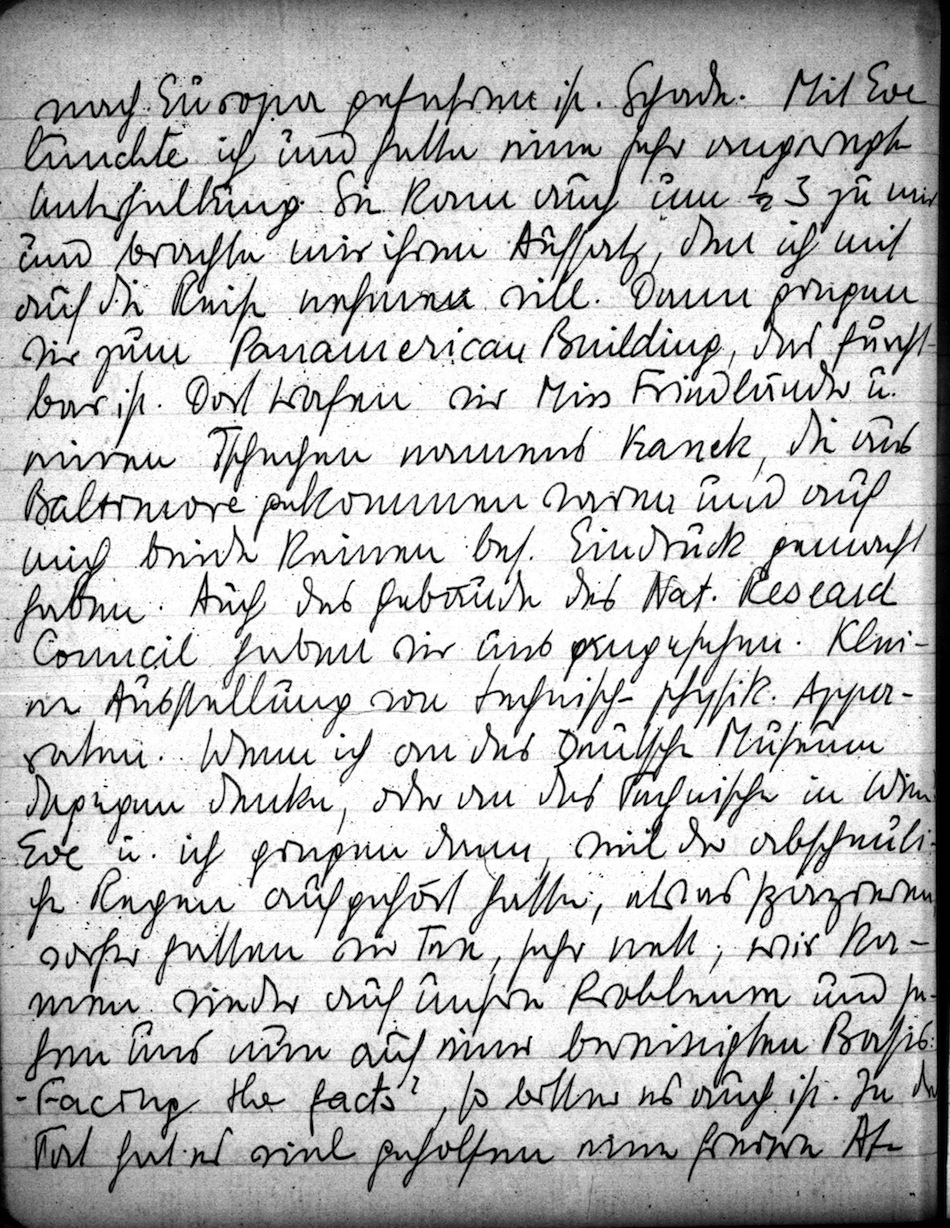 nach Europa gefahren ist. Schade. Mit Eve
lunchte ich und hatte eine sehr angeregte
Unterhaltung. Sie kam auch um ½ 3 zu mir
und brachte mir ihren Aufsatz, den ich mit
auf die Reise nehmen will. Dann gingen
wir zum Panamerican Building, das furcht-
bar ist. Dort trafen wir Miss Friedländer u.
einen Tschechen namens Kanek, die aus
Baltimore gekommen waren und auf
mich beide keinen bes. Eindruck gemacht
haben. Auch das Gebäude des Nat. Research
Council haben wir uns angesehen. Klei-
ne Ausstellung von technisch-physik. Appa-
raten. Wenn ich an das Deutsche Museum
dagegen denke, oder an das Technische in Wien.
Eve u. ich gingen dann, weil der abscheuli-
che Regen aufgehört hatte, etwas spazieren
vorher hatten wir Tee, sehr nett, wir ka-
men wieder auf unsere Probleme und se-
hen uns nun auf einer bereinigten Basis.
"Facing the facts", so bitter es auch ist. In der
Tat hat es viel geholfen eine